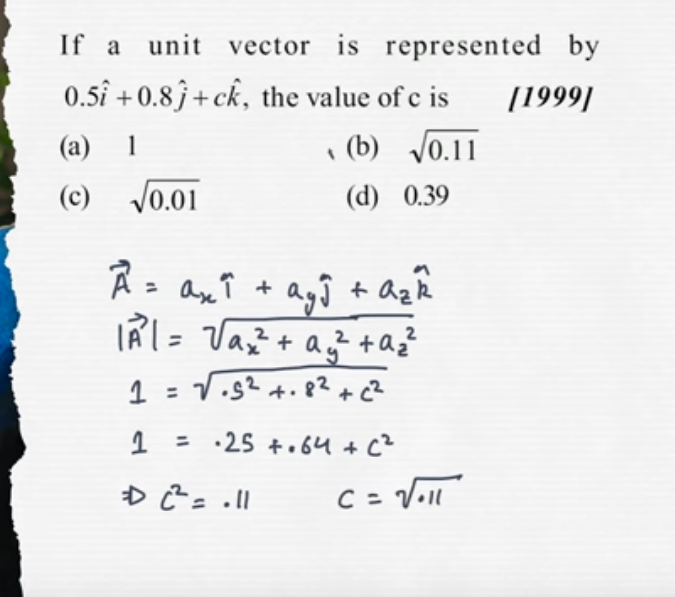 If a unit vector is represented by
0.5î + 0.8ĵ + ck̂, the value of c is [1999]
(a) 1 (b) √0.11
(c) √0.01 (d) 0.39
A⃗ = aₓî + a_yĵ + a_zk̂
|A⃗| = √aₓ² + a_y² + a_z²
1 = √.5² + .8² + c²
1 = .25 + .64 + c²
⇒ c² = .11 c = √.11